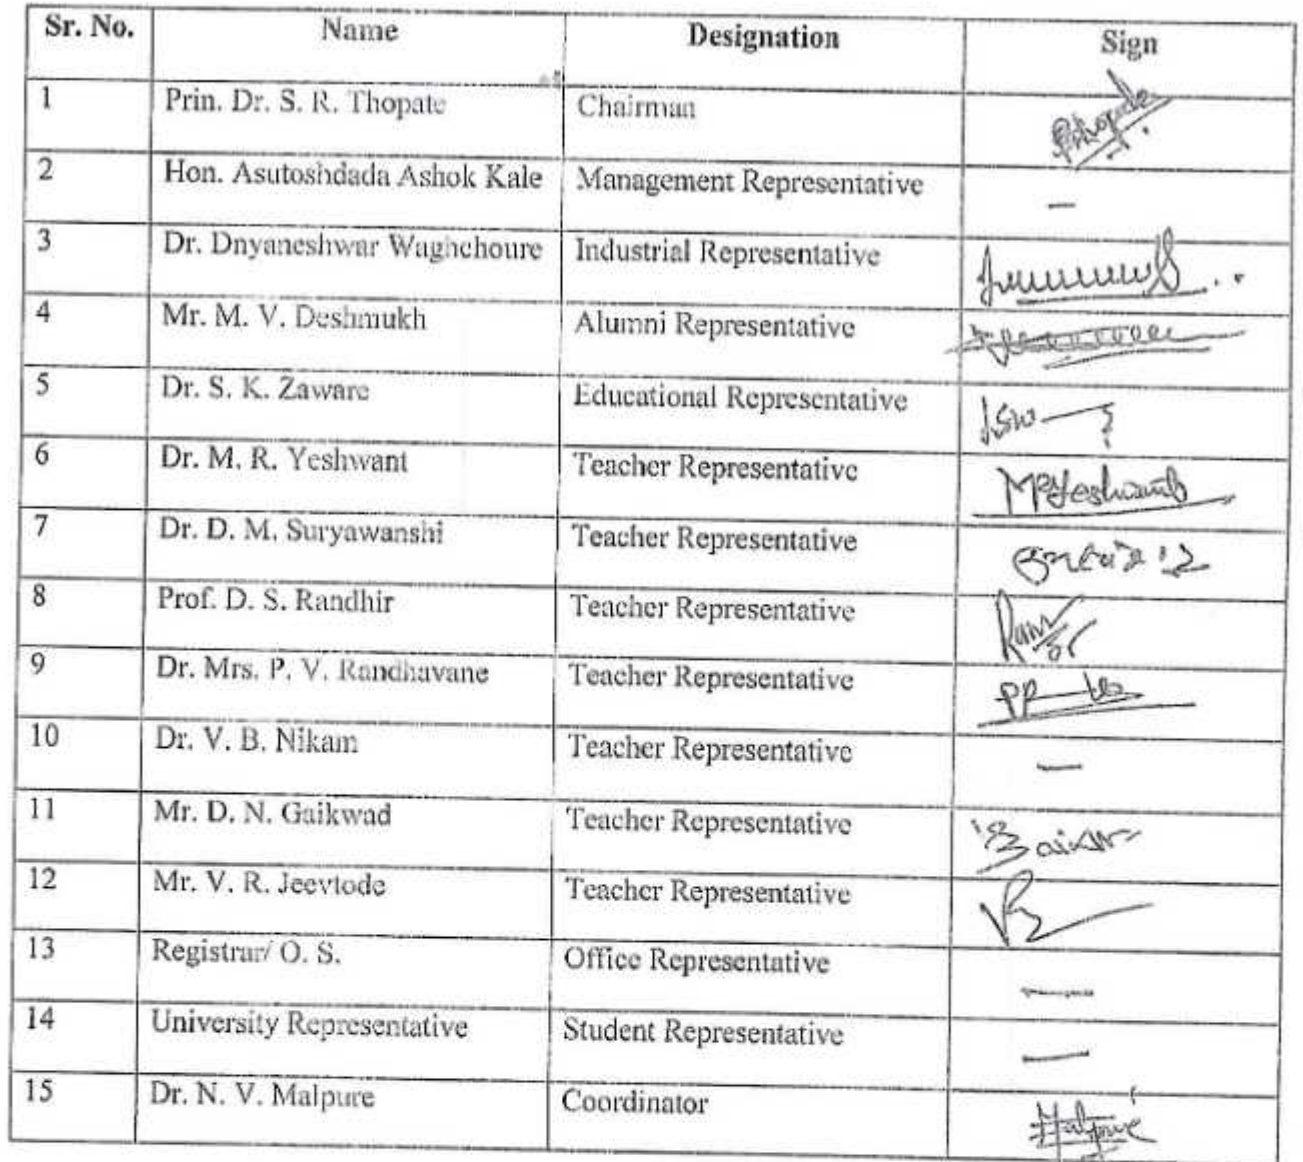 Sr. No. Name Designation Sign
1 Prin. Dr. S. R. Thopate Chairman
2 Hon. Asutoshdada Ashok Kale Management Representative –
3 Dr. Dnyaneshwar Waghchoure Industrial Representative
4 Mr. M. V. Deshmukh Alumni Representative
5 Dr. S. K. Zaware Educational Representative
6 Dr. M. R. Yeshwant Teacher Representative MRYeshwant
7 Dr. D. M. Suryawanshi Teacher Representative
8 Prof. D. S. Randhir Teacher Representative
9 Dr. Mrs. P. V. Randhavane Teacher Representative
10 Dr. V. B. Nikam Teacher Representative –
11 Mr. D. N. Gaikwad Teacher Representative
12 Mr. V. R. Jeevtode Teacher Representative
13 Registrar/ O. S. Office Representative –
14 University Representative Student Representative –
15 Dr. N. V. Malpure Coordinator Malpure